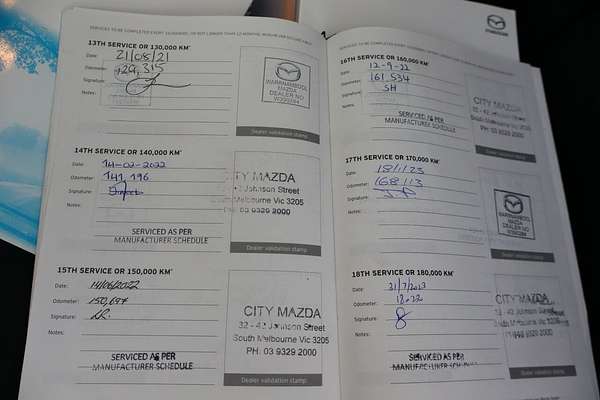 SERVICES TO BE COMPLETED EVERY
13TH SERVICE OR 130,000 KM*
Date: 21/08/21
Odometer: 129,315
Signature:
Notes:
WARRNAMBOOL
MAZDA
DEALER NO
Dealer validation stamp
14TH SERVICE OR 140,000 KM*
Date: 14-02-2022
Odometer: 141,196
Signature:
Notes:
SERVICED AS PER
MANUFACTURER SCHEDULE
CITY MAZDA
Johnson Street
South Melbourne Vic 3205
PH: 03 9329 2000
Dealer validation stamp
15TH SERVICE OR 150,000 KM*
Date: 14/06/2022
Odometer: 150,697
Signature:
Notes:
SERVICED AS PER
MANUFACTURER SCHEDULE
CITY MAZDA
32 - 42 Johnson Street
South Melbourne Vic 3205
PH: 03 9329 2000
Dealer validation stamp
mazda
SERVICES TO BE COMPLETED EVERY
16TH SERVICE OR 160,000 KM*
Date: 12-9-22
Odometer: 161 534
Signature: SH
Notes:
SERVICED AS PER
MANUFACTURER SCHEDULE
CITY MAZDA
32 - 42 Johnson Street
South Melbourne Vic 3205
PH: 03 9329 2000
17TH SERVICE OR 170,000 KM*
Date: 18/1/23
Odometer: 168113
Signature:
Notes:
WARRNAMBOOL
MAZDA
DEALER NO
Dealer validation stamp
18TH SERVICE OR 180,000 KM*
Date: 31/7/2023
Odometer:
Signature:
Notes:
SERVICED AS PER
MANUFACTURER SCHEDULE
CITY MAZDA
32 - 42 Johnson Street
South Melbourne Vic 3205
PH: 03 9329 2000
Dealer validation stamp